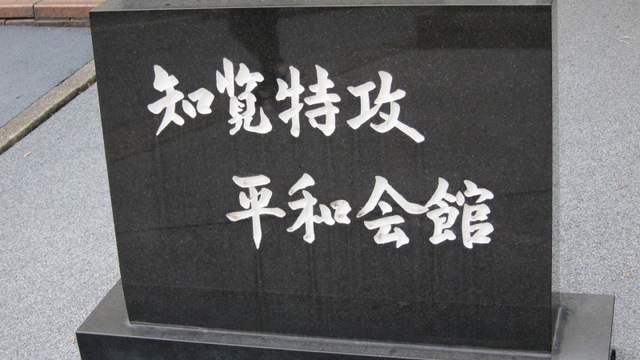 知覧特攻
平和会館